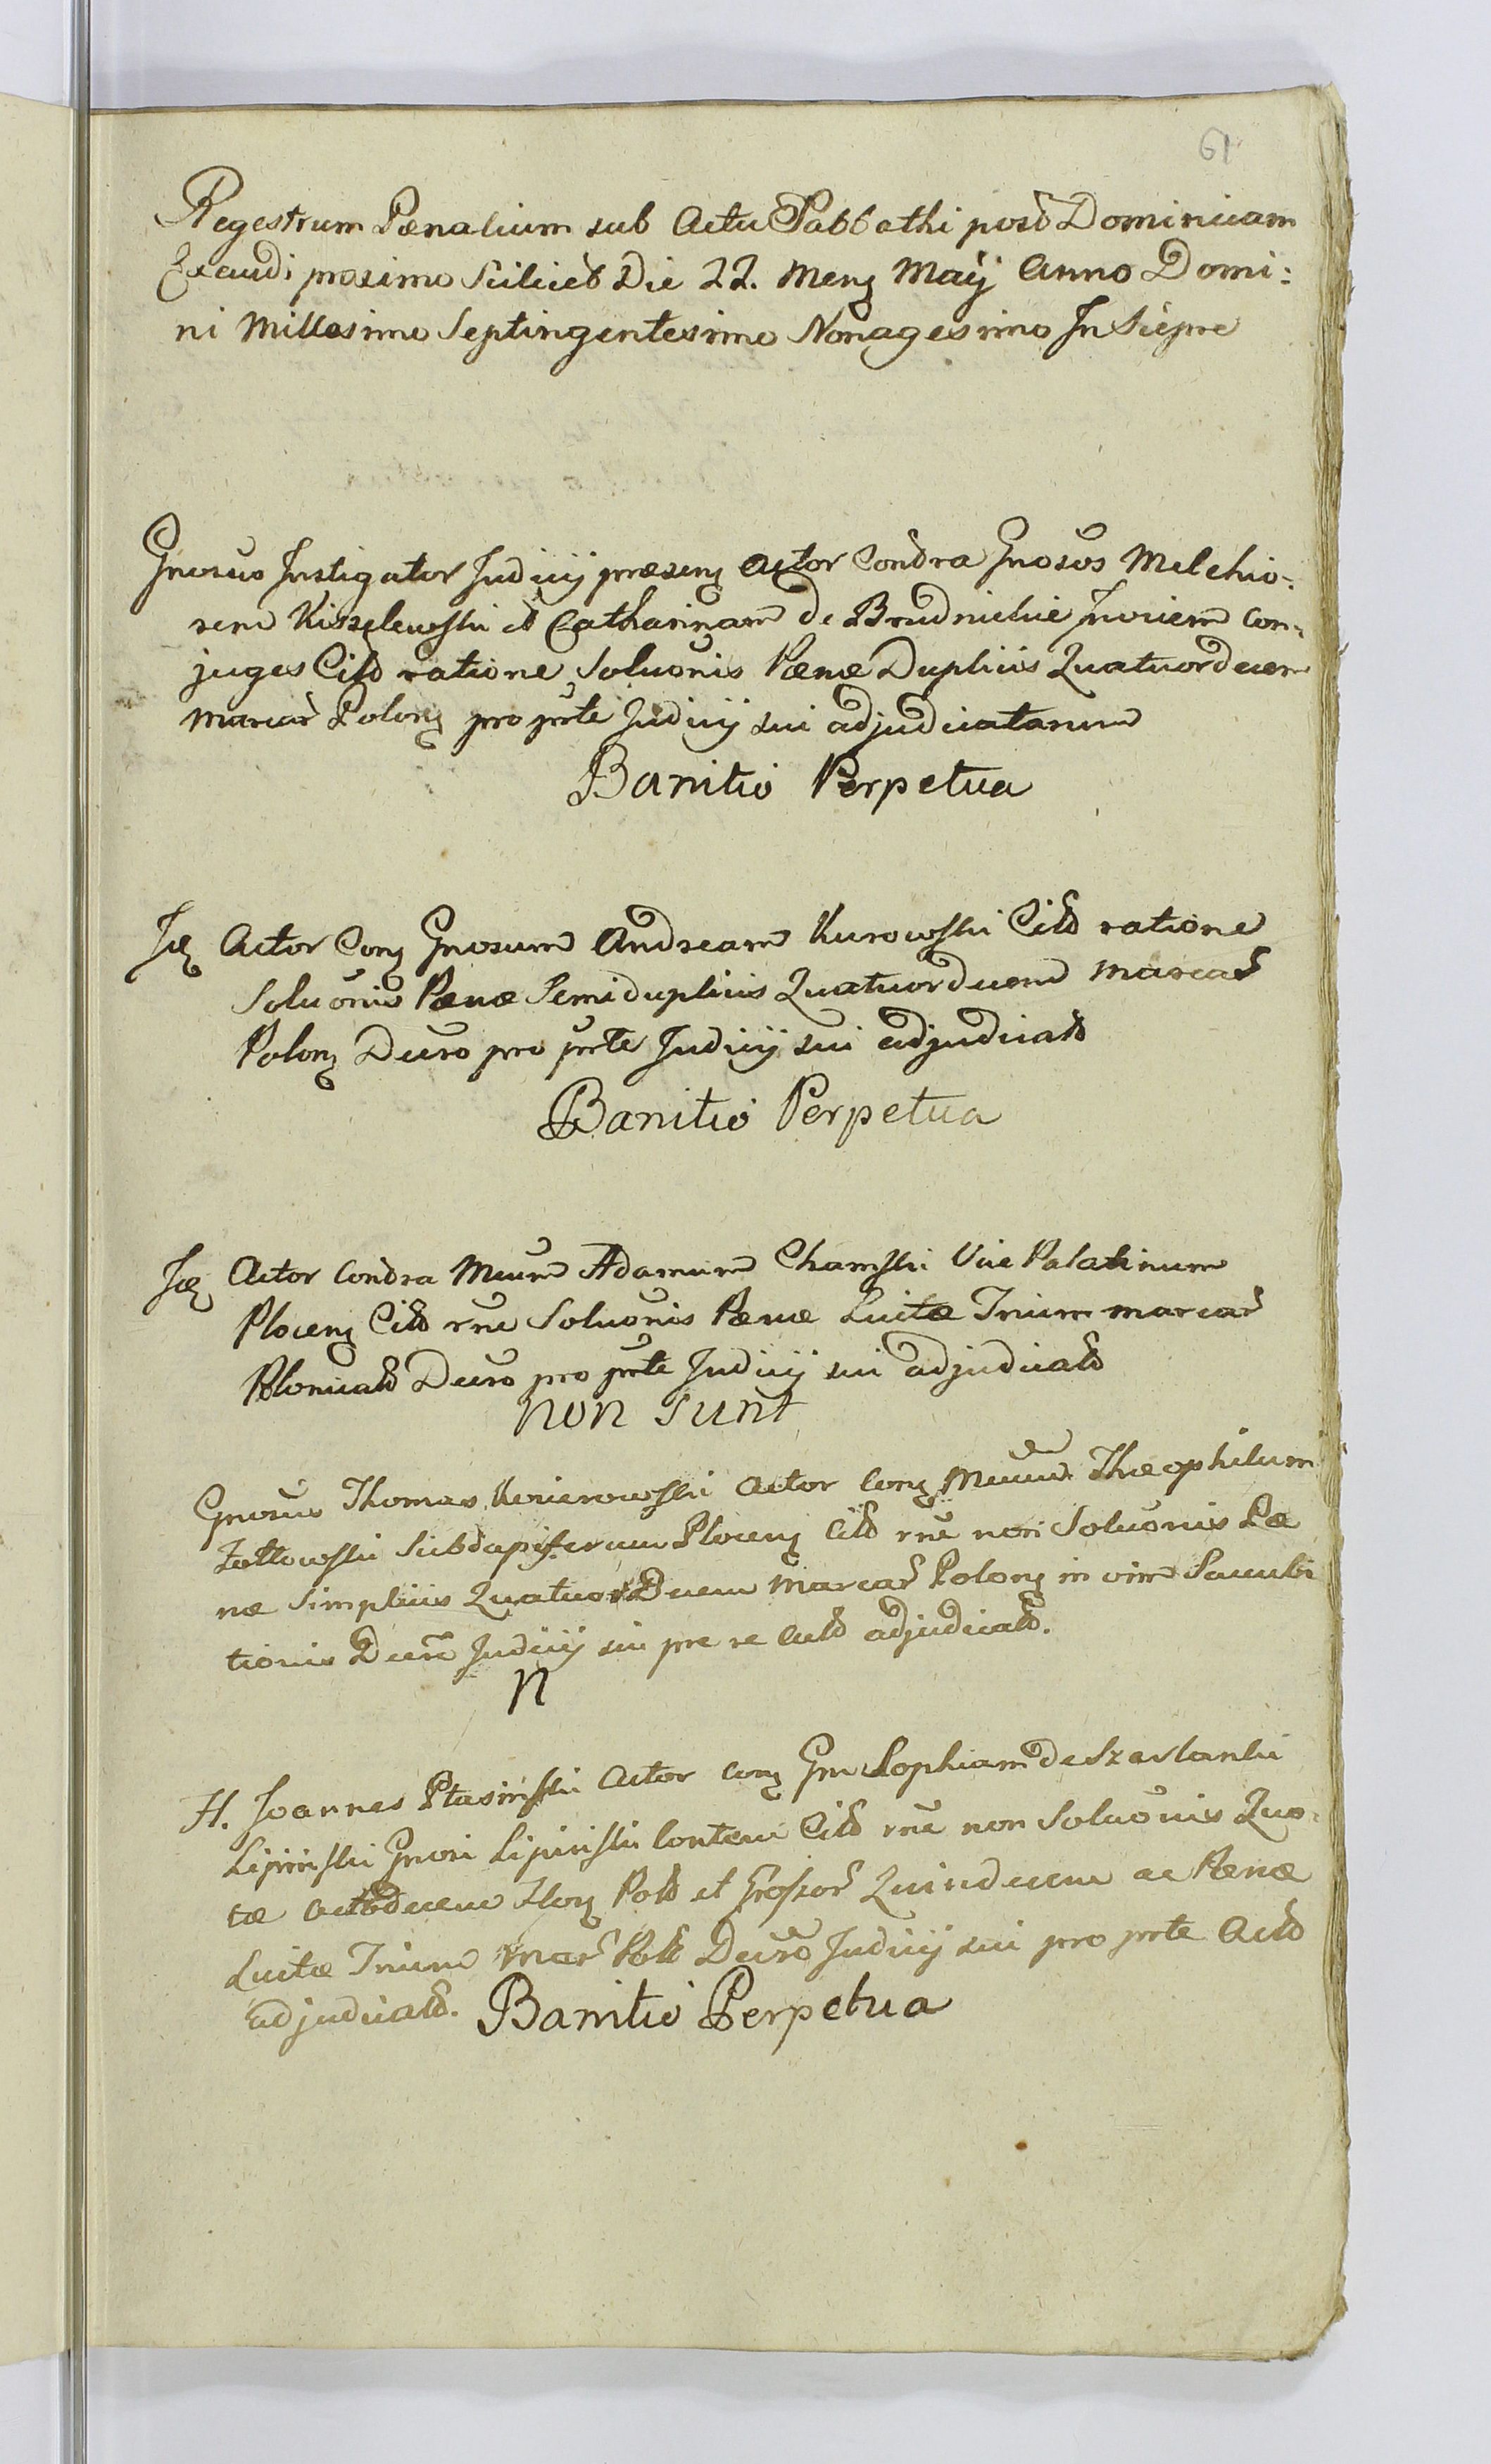 61
Regestrum Pœnalium sub Actu Sabbathi post Dominicam
Exaudi proximo Scilicet Die 22. Mens Maÿ Anno Domi:
ni Millesimo Septingentesimo Nonagesimo In Siepre
Gnosus Instigator Judicij præsens Actor Contra Gnosos Melchio:
rem Kiszelewski et Catharinam de Brudnickie Inviem Con:
juges Citt ratione Soluõnis Pœnæ Duplicis Quatuordecem
Marcar̃ Polons pro prte Judicij sui adjudicatarum
Banitio Perpetua
Ids Actor Cons Gnosum Andream Kurowski Citt ratione
Soluõnis Pœnæ Semiduplicis Quatuordecem Marcar̃
Polons Decro pro prte Judicij sui adjudicatt
Banitio Perpetua
Ids Actor Contra Mcum Adamum Chamski Vice Palatinum
Plocens Citt rne Soluõnis Pœnæ Luitæ Trium Marcar̃
Plonicatt Decro pro prte Judicij sui adjudicatt
non sunt
Gnosus Thomas Actor Cons Mcum Theophilum
Załtowski Subdapiferum Plocens Citt rne non Soluõnis Pœ
næ Simplicis QuatuorDecem Marcar̃ Polons in vim Succubi
tionis Decre Judicij sui pre re Actt adjudicatt.
n
H. Joannes Ptasinski Actor Cons Gm Sophiam de Szarlanki
Lipinski Gnosi Lipinski Contem Citt rne non Soluõnis Quo:
tæ Actodecem Flons Pols et Grossor̃ Quindecem ac Pœnæ
Luitæ Trium Mar̃ Poll Decro Judicij sui pro prte Actt
adjudicatt. Banitio Perpetua